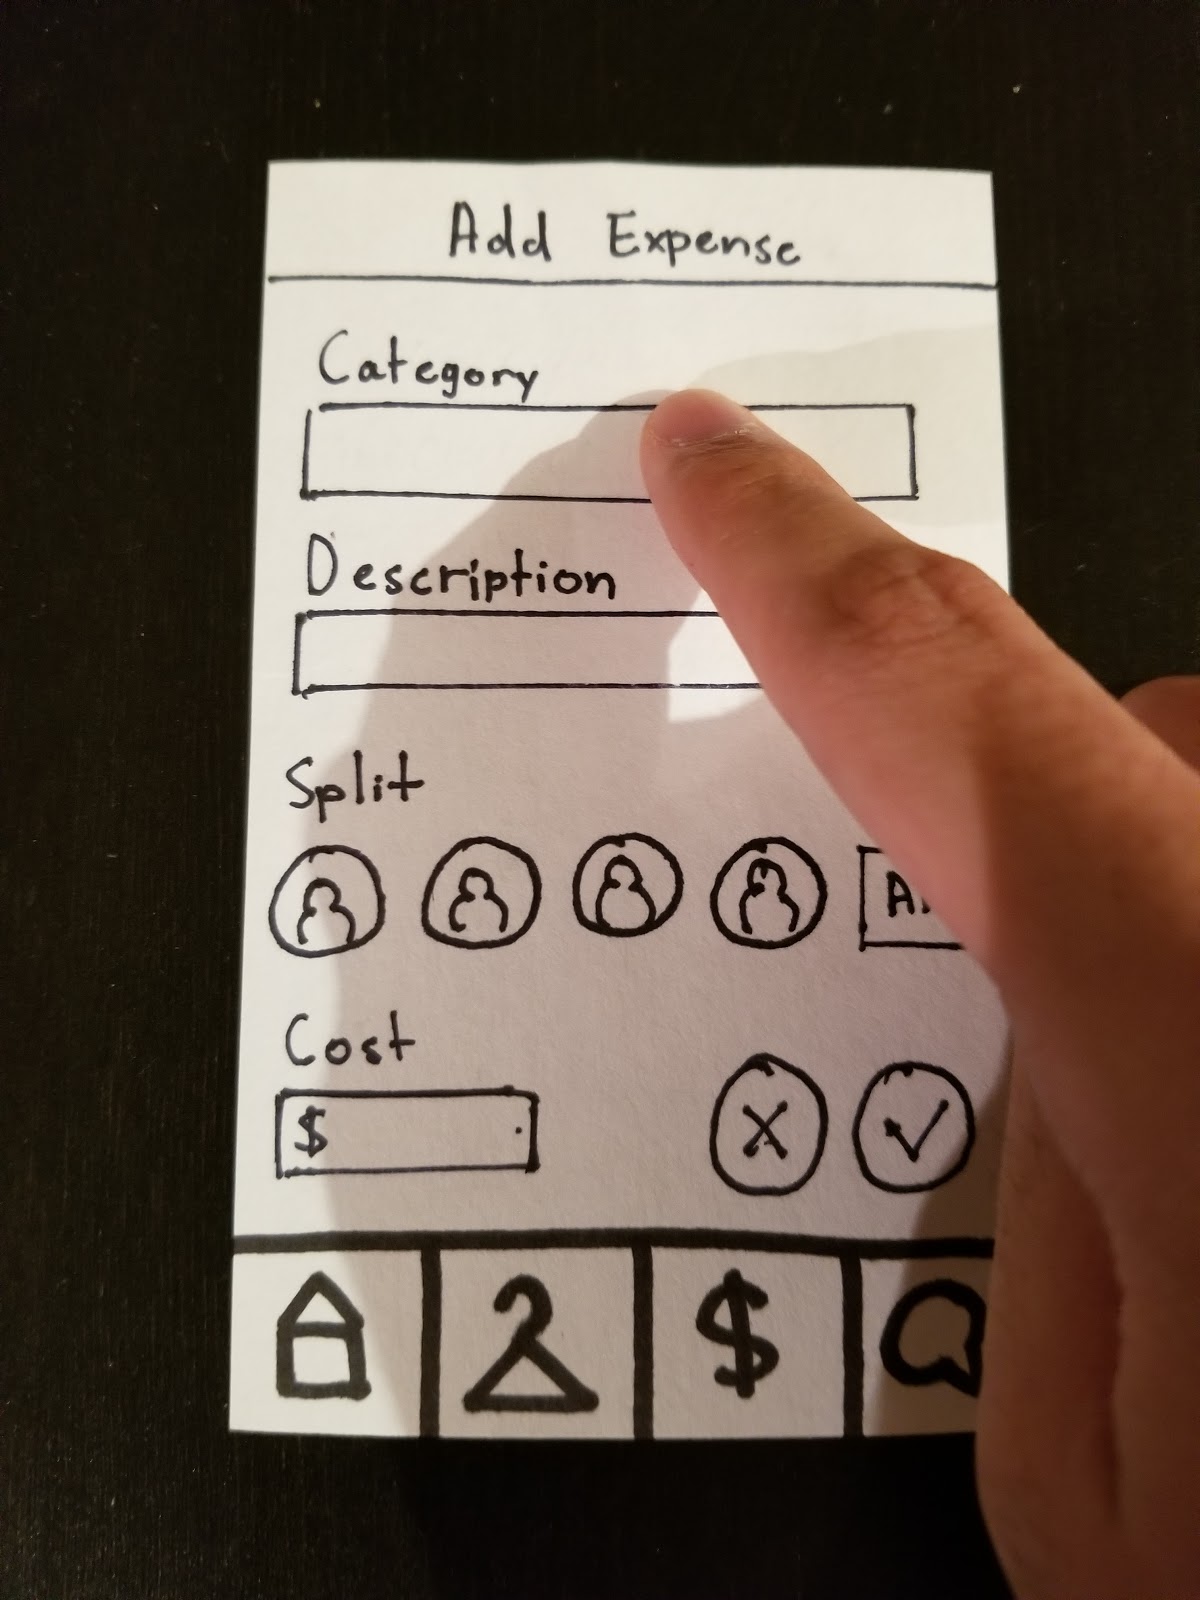 Add Expense
Category
Description
Split
Cost
$
$